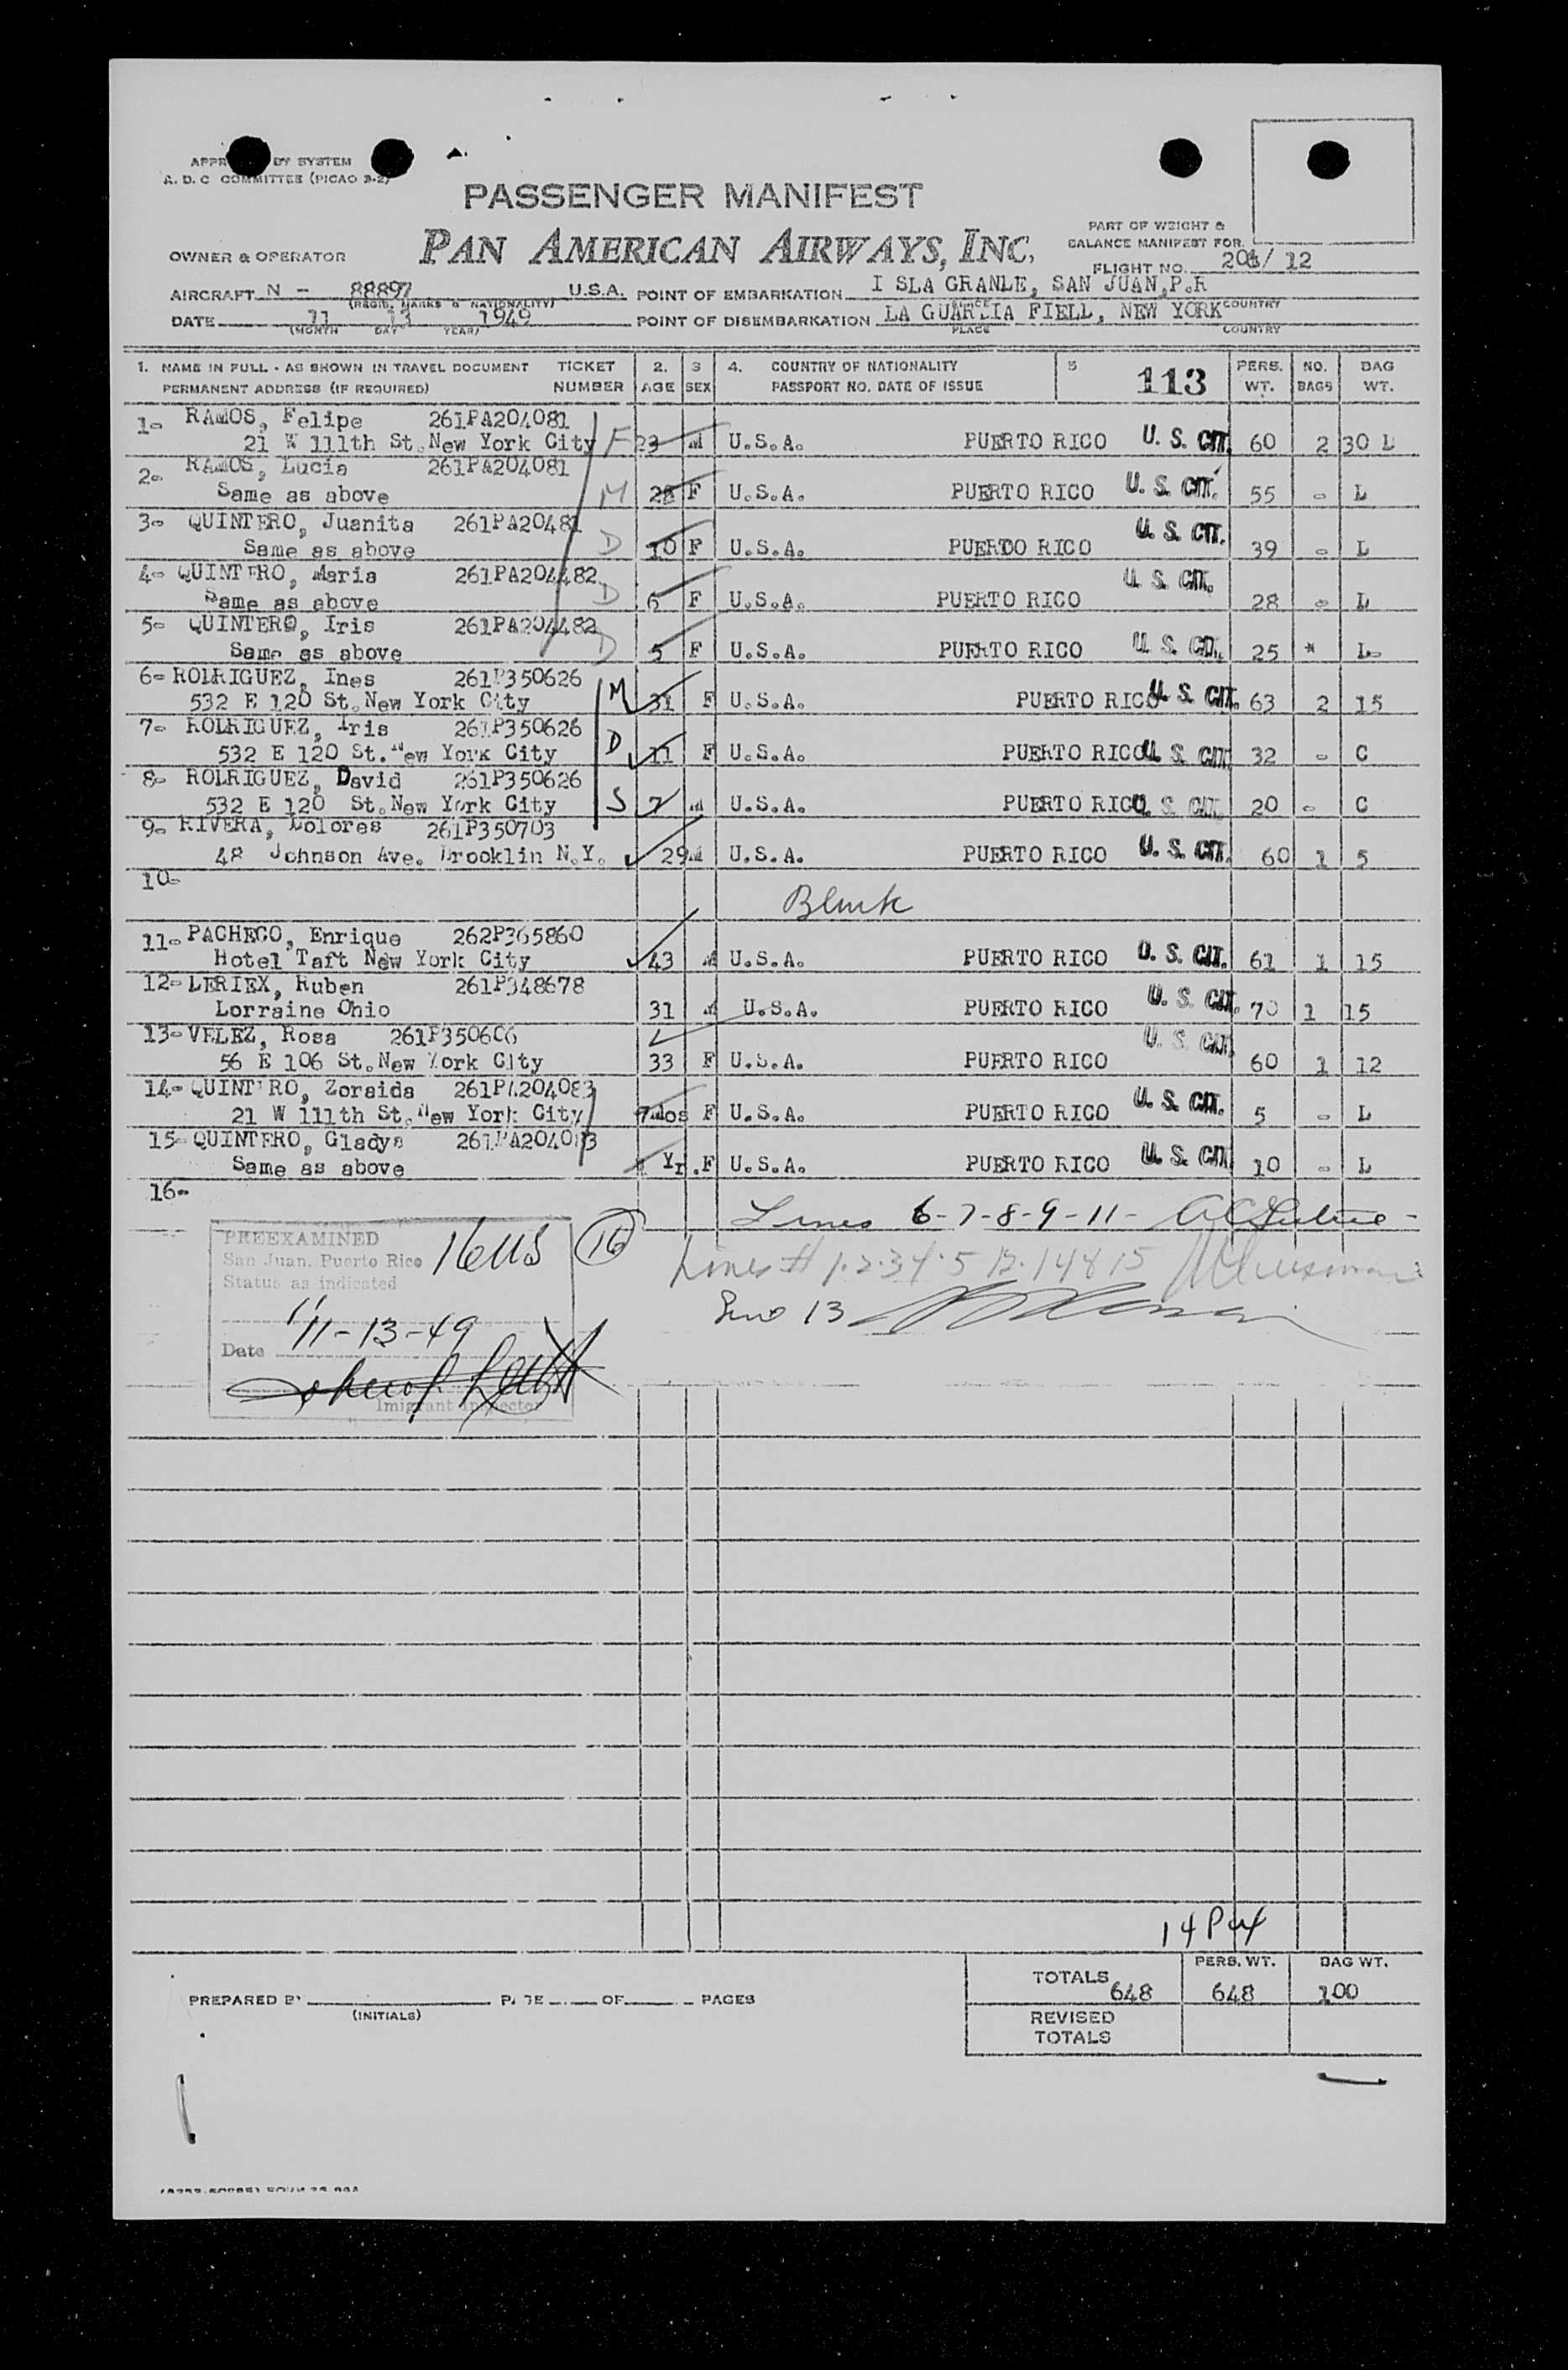 BY SYSTEM
A. D. C COMMITTEE (PICAO 3-2)
PASSENGER MANIFEST
PAN AMERICAN AIRWAYS, INC.
OWNER & OPERATOR
PART OF WEIGHT &
BALANCE MANIFEST FOR.
FLIGHT NO. / 12
AIRCRAFT N - 88897 U.S.A. POINT OF EMBARKATION I SLA GRANLE, SAN JUAN,P.R
(REGIS. MARKS & NATIONALITY) PLACE COUNTRY
DATE 11 13 1949 POINT OF DISEMBARKATION LA GUARLIA FIELL, NEW YORK
(MONTH DAY YEAR) PLACE COUNTRY
1. NAME IN FULL - AS SHOWN IN TRAVEL DOCUMENT TICKET 2. 3 4. COUNTRY OF NATIONALITY 5 113 PERS. NO. BAG
PERMANENT ADDRESS (IF REQUIRED) NUMBER AGE SEX PASSPORT NO. DATE OF ISSUE WT. BAGS WT.
1- RAMOS, Felipe 261PA204081
21 W 111th St.New York City F 23 M U.S.A. PUERTO RICO U. S. CIT. 60 2 30 L
2- RAMOS, Lucia 261PA204081
Same as above M 28 F U.S.A. PUERTO RICO U. S. CIT. 55 - L
3- QUINTERO, Juanita 261PA20481
Same as above D 10 F U.S.A. PUERTOO RICO U. S. CIT. 39 - L
4- QUINTERO, Maria 261PA204482
Same as above D 6 F U.S.A. PUERTO RICO U. S. CIT. 28 - L
5- QUINTERO, Iris 261PA204482
Same as above D 5 F U.S.A. PUERTO RICO U. S. CIT. 25 * L-
6- ROLRIGUEZ, Ines 261P350626
532 E 120 St.New York City M 31 F U.S.A. PUERTO RICO U. S. CIT. 63 2 15
7- ROLRIGUEZ, Iris 261P350626
532 E 120 St.New York City D 11 F U.S.A. PUERTO RICO U. S. CIT. 32 - C
8- ROLRIGUEZ, David 261P350626
532 E 120 St.New York City S 7 M U.S.A. PUERTO RICO U. S. CIT. 20 - C
9- RIVERA, Dolores 261P350703
48 Johnson Ave. Brooklin N.Y. 29 M U.S.A. PUERTO RICO U. S. CIT. 60 1 5
10-
Blank
11- PACHECO, Enrique 262P365860
Hotel Taft New York City 43 M U.S.A. PUERTO RICO U. S. CIT. 61 1 15
12- LERIEX, Ruben 261P348678
Lorraine Ohio 31 M U.S.A. PUERTO RICO U. S. CIT. 70 1 15
13- VELEZ, Rosa 261P350606
56 E 106 St.New York City 33 F U.S.A. PUERTO RICO U. S. CIT. 60 1 12
14- QUINTERO, Zoraida 261PA204083
21 W 111th St.New York City 7mos F U.S.A. PUERTO RICO U. S. CIT. 5 - L
15- QUINTERO, Gladys 261PA204083
Same as above Yr. F U.S.A. PUERTO RICO U. S. CIT. 10 - L
16-
Lines 6-7-8-9-11-
PREEXAMINED
San Juan, Puerto Rico 16 US 16
Status as indicated
Lines # 1.2.3.4.5 12.14 & 15
Line 13
Date 11-13-49
Imigrant Inspector
14 Pax
TOTALS 648 PERS. WT. 648 BAG WT. 100
PREPARED BY PAGE OF PAGES
(INITIALS)
REVISED
TOTALS